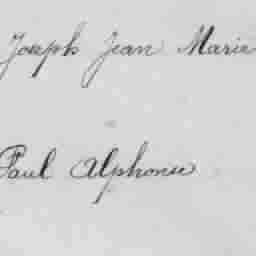 Joseph Jean Marie
Paul Alphonse